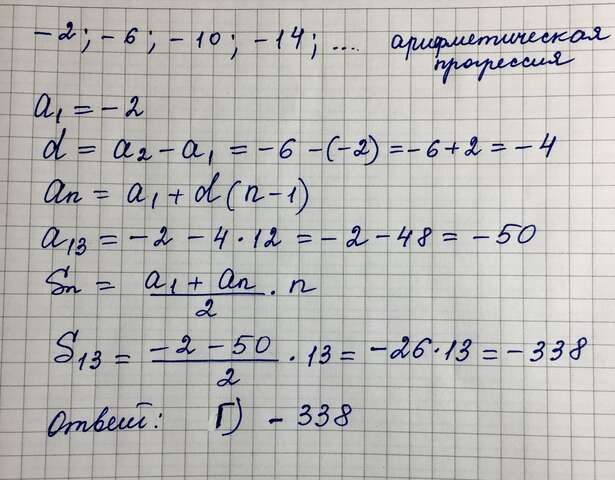 -2; -6; -10; -14; .... арифметическая
прогрессия
a₁ = -2
d = a₂ - a₁ = -6 - (-2) = -6 + 2 = -4
aₙ = a₁ + d(n-1)
a₁₃ = -2 - 4 · 12 = -2 - 48 = -50
Sₙ = (a₁ + aₙ)/2 · n
S₁₃ = (-2 - 50)/2 · 13 = -26 · 13 = -338
Ответ: Г) -338